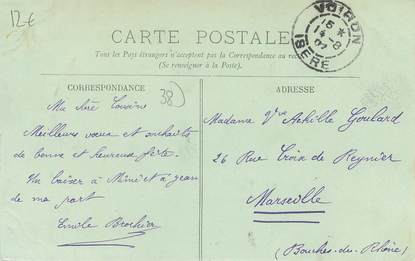 12 €
CARTE POSTALE
Tous les Pays étrangers n'acceptent pas la Correspondance au
(Se renseigner à la Poste).
VOIRON
15 *
14-8
07
ISÈRE
CORRESPONDANCE
38
ADRESSE
Ma chère Cousine
Meilleurs vœux et souhaits
de bonne et heureuse fête.
Un baiser à Mimi et à Jean
de ma part
Emile Brochier
Madame Vve Achille Goulard
26 Rue Croix de Reynier
Marseille
(Bouches-du-Rhône)